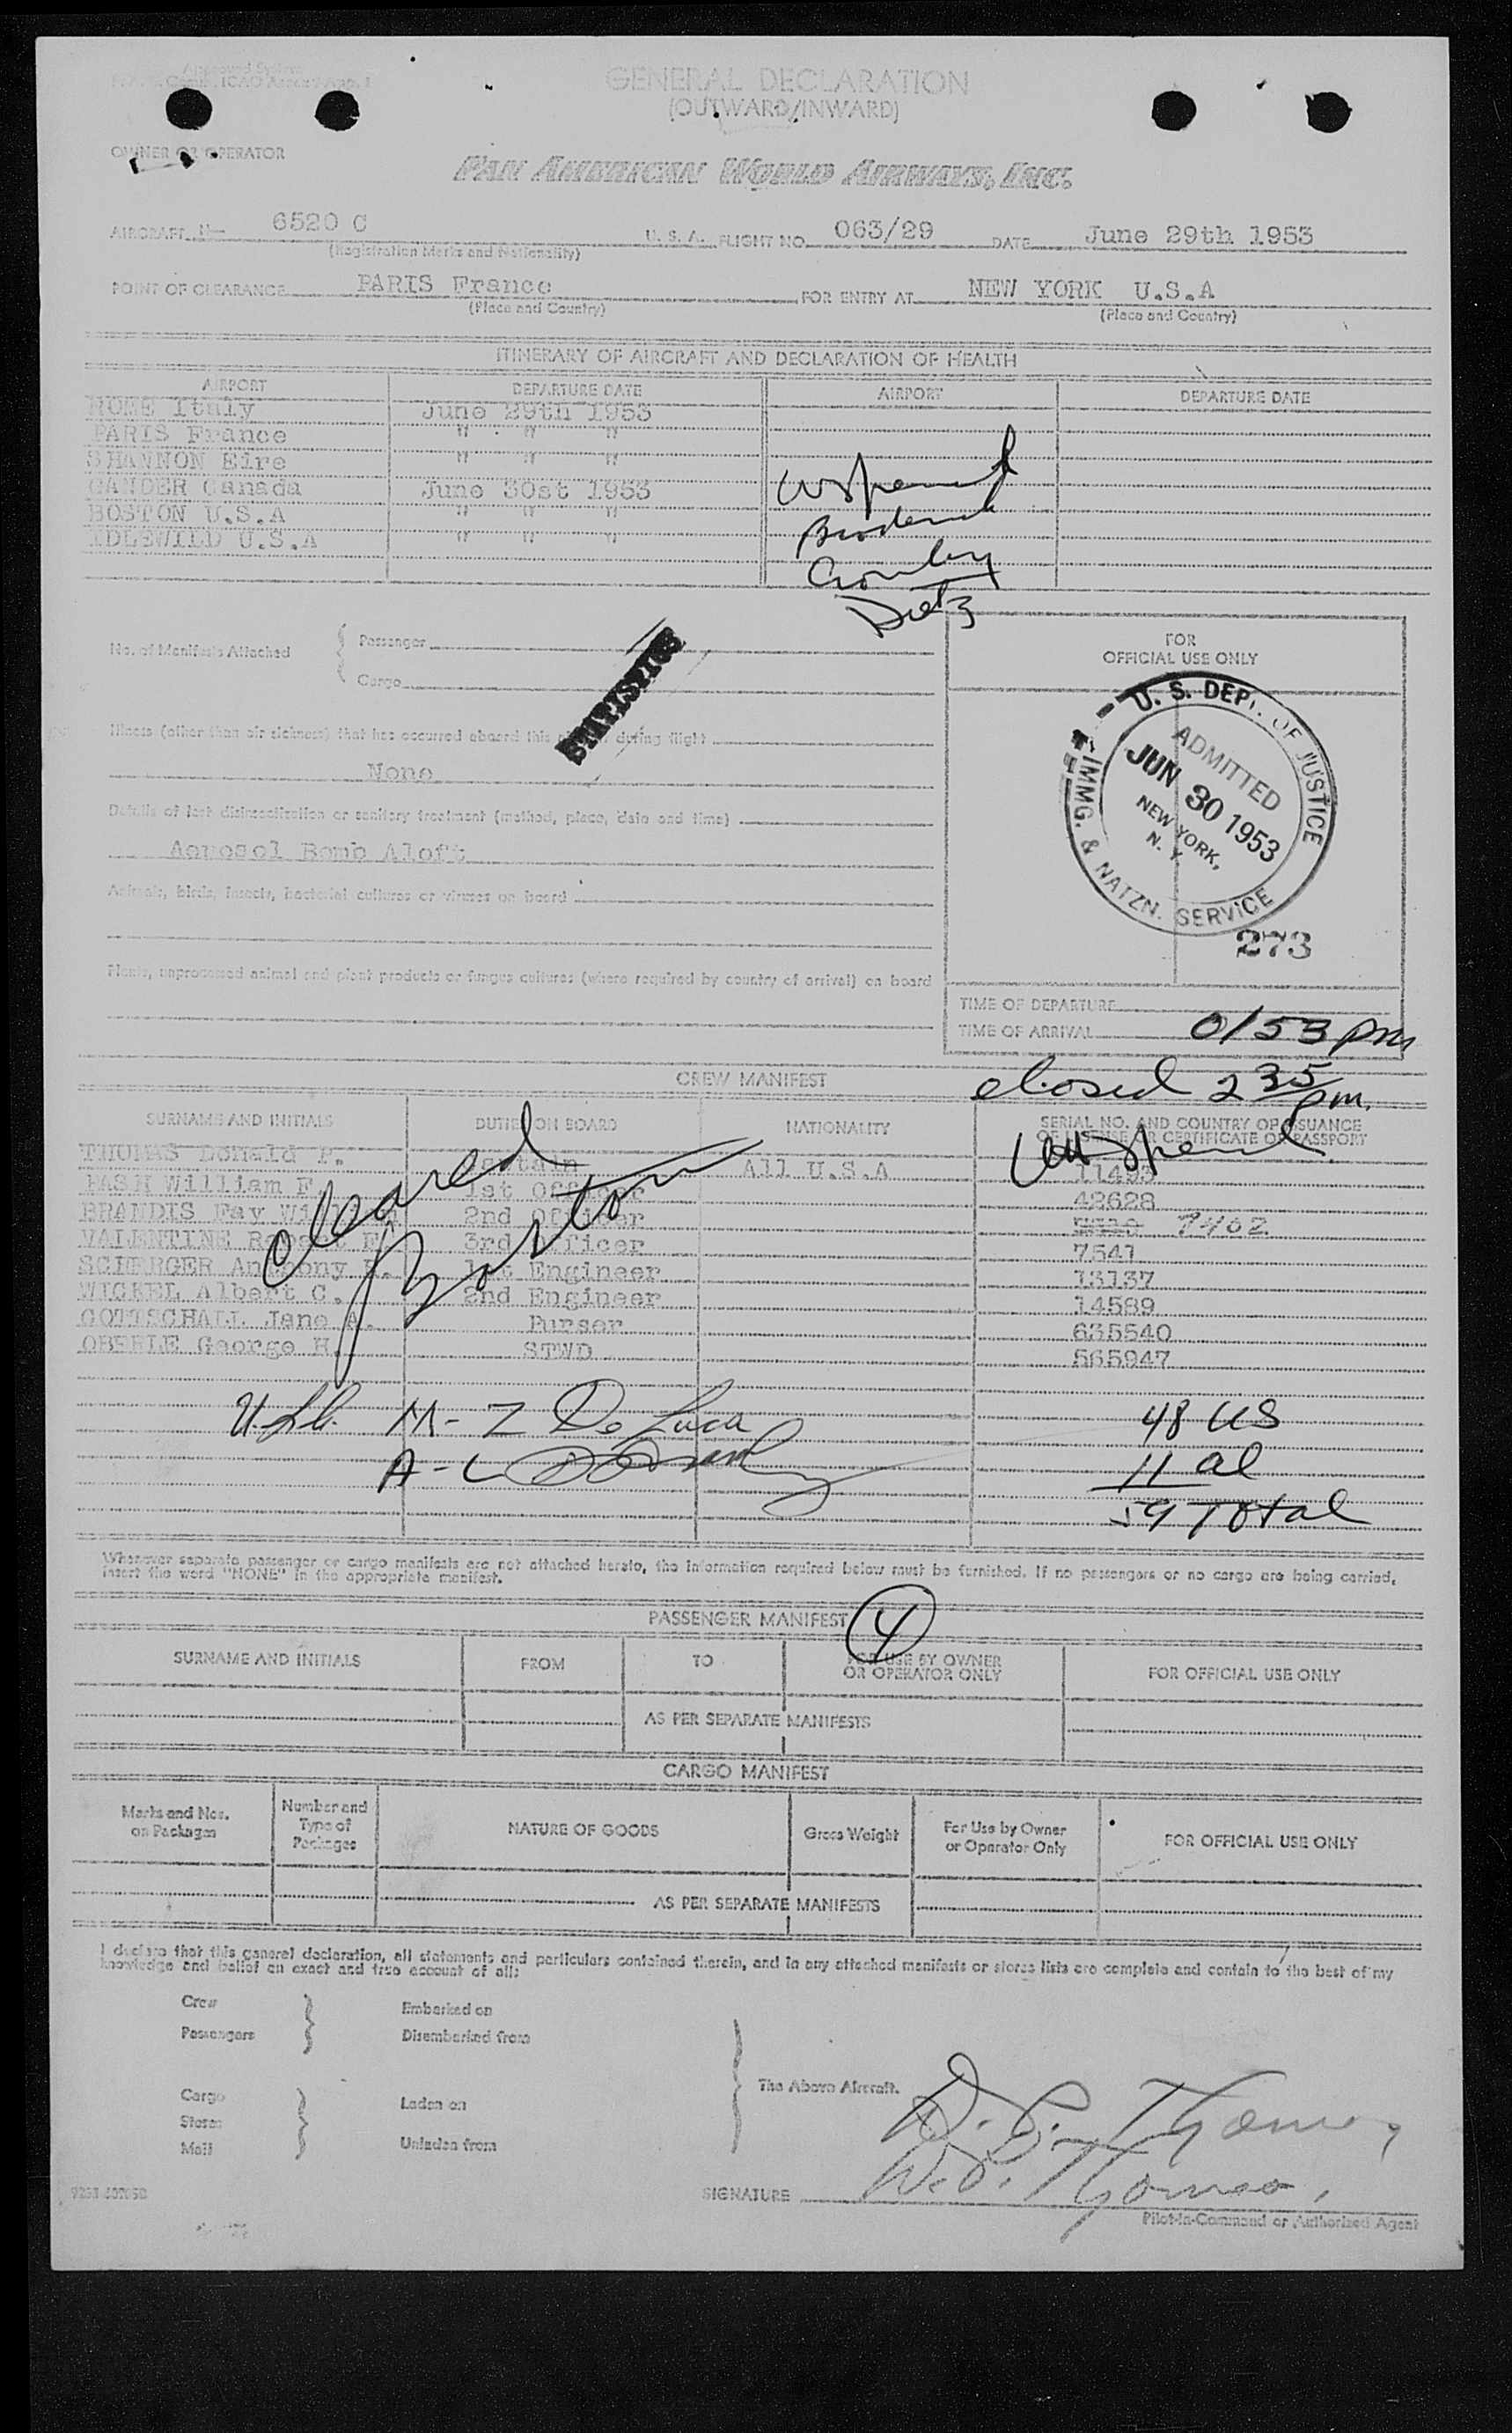 Approved System
GENERAL DECLARATION
(OUTWARD/INWARD)
OWNER OR OPERATOR
PAN AMERICAN WORLD AIRWAYS, INC.
AIRCRAFT N- 6520 C U. S. A. FLIGHT NO. 063/29 DATE June 29th 1953
(Registration Marks and Nationality)
POINT OF CLEARANCE PARIS France FOR ENTRY AT NEW YORK U.S.A
(Place and Country) (Place and Country)
ITINERARY OF AIRCRAFT AND DECLARATION OF HEALTH
AIRPORT DEPARTURE DATE AIRPORT DEPARTURE DATE
ROME Italy June 29th 1953
PARIS France " " "
SHANNON Eire " " "
GANDER Canada June 30st 1953
BOSTON U.S.A " " "
IDLEWILD U.S.A " " "
Broderick
Dietz
No. of Manifests Attached
Passenger
Cargo
STATISTICS
FOR
OFFICIAL USE ONLY
U. S. DEPT. OF JUSTICE
IMMG. & NATZN. SERVICE
ADMITTED
JUN 30 1953
NEW YORK,
N. Y.
273
Illness (other than air sickness) that has occurred aboard this during flight
None
Details of last disinsectization or sanitary treatment (method, place, date and time)
Aerosol Bomb Aloft
Animals, birds, insects, bacterial cultures or viruses on board
Plants, unprocessed animal and plant products or fungus cultures (where required by country of arrival) on board
TIME OF DEPARTURE
TIME OF ARRIVAL 0153 pm
closed 2 35 pm.
CREW MANIFEST
SURNAME AND INITIALS DUTIES ON BOARD NATIONALITY SERIAL NO. AND COUNTRY OF ISSUANCE
OF LICENSE OR CERTIFICATE OR PASSPORT
THOMAS Donald P. Captain All U.S.A 11493
PASH William F. 1st Officer 42628
BRANDIS Fay 2nd Officer 7402
VALENTINE Robert F. 3rd Officer 7541
SCHERGER Anthony 1st Engineer 13137
WICKEL Albert C. 2nd Engineer 14589
GOTTSCHALL Jane A. Purser 635540
OBERLE George H. STWD 565947
Cleared
Boston
M - Z De Luca
A - L
48 US
11 al
59 Total
Whenever separate passenger or cargo manifests are not attached hereto, the information required below must be furnished. If no passengers or no cargo are being carried,
insert the word "NONE" in the appropriate manifest.
PASSENGER MANIFEST 4
SURNAME AND INITIALS FROM TO FOR USE BY OWNER
OR OPERATOR ONLY FOR OFFICIAL USE ONLY
AS PER SEPARATE MANIFESTS
CARGO MANIFEST
Marks and Nos.
on Packages Number and
Type of
Packages NATURE OF GOODS Gross Weight For Use by Owner
or Operator Only FOR OFFICIAL USE ONLY
AS PER SEPARATE MANIFESTS
I declare that this general declaration, all statements and particulars contained therein, and in any attached manifests or stores lists are complete and contain to the best of my
knowledge and belief an exact and true account of all:
Crew Embarked on
Passengers Disembarked from
The Above Aircraft.
Cargo Laden on
Stores
Mail Unladen from
D. P. Thomas
SIGNATURE D. P. Thomas
Pilot-in-Command or Authorized Agent